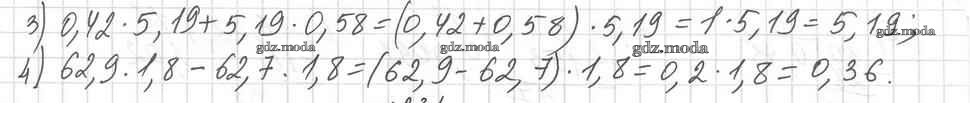 3) 0,42 · 5,19 + 5,19 · 0,58 = (0,42 + 0,58) · 5,19 = 1 · 5,19 = 5,19;
gdz.moda gdz.moda gdz.moda gdz.moda
4) 62,9 · 1,8 - 62,7 · 1,8 = (62,9 - 62,7) · 1,8 = 0,2 · 1,8 = 0,36.